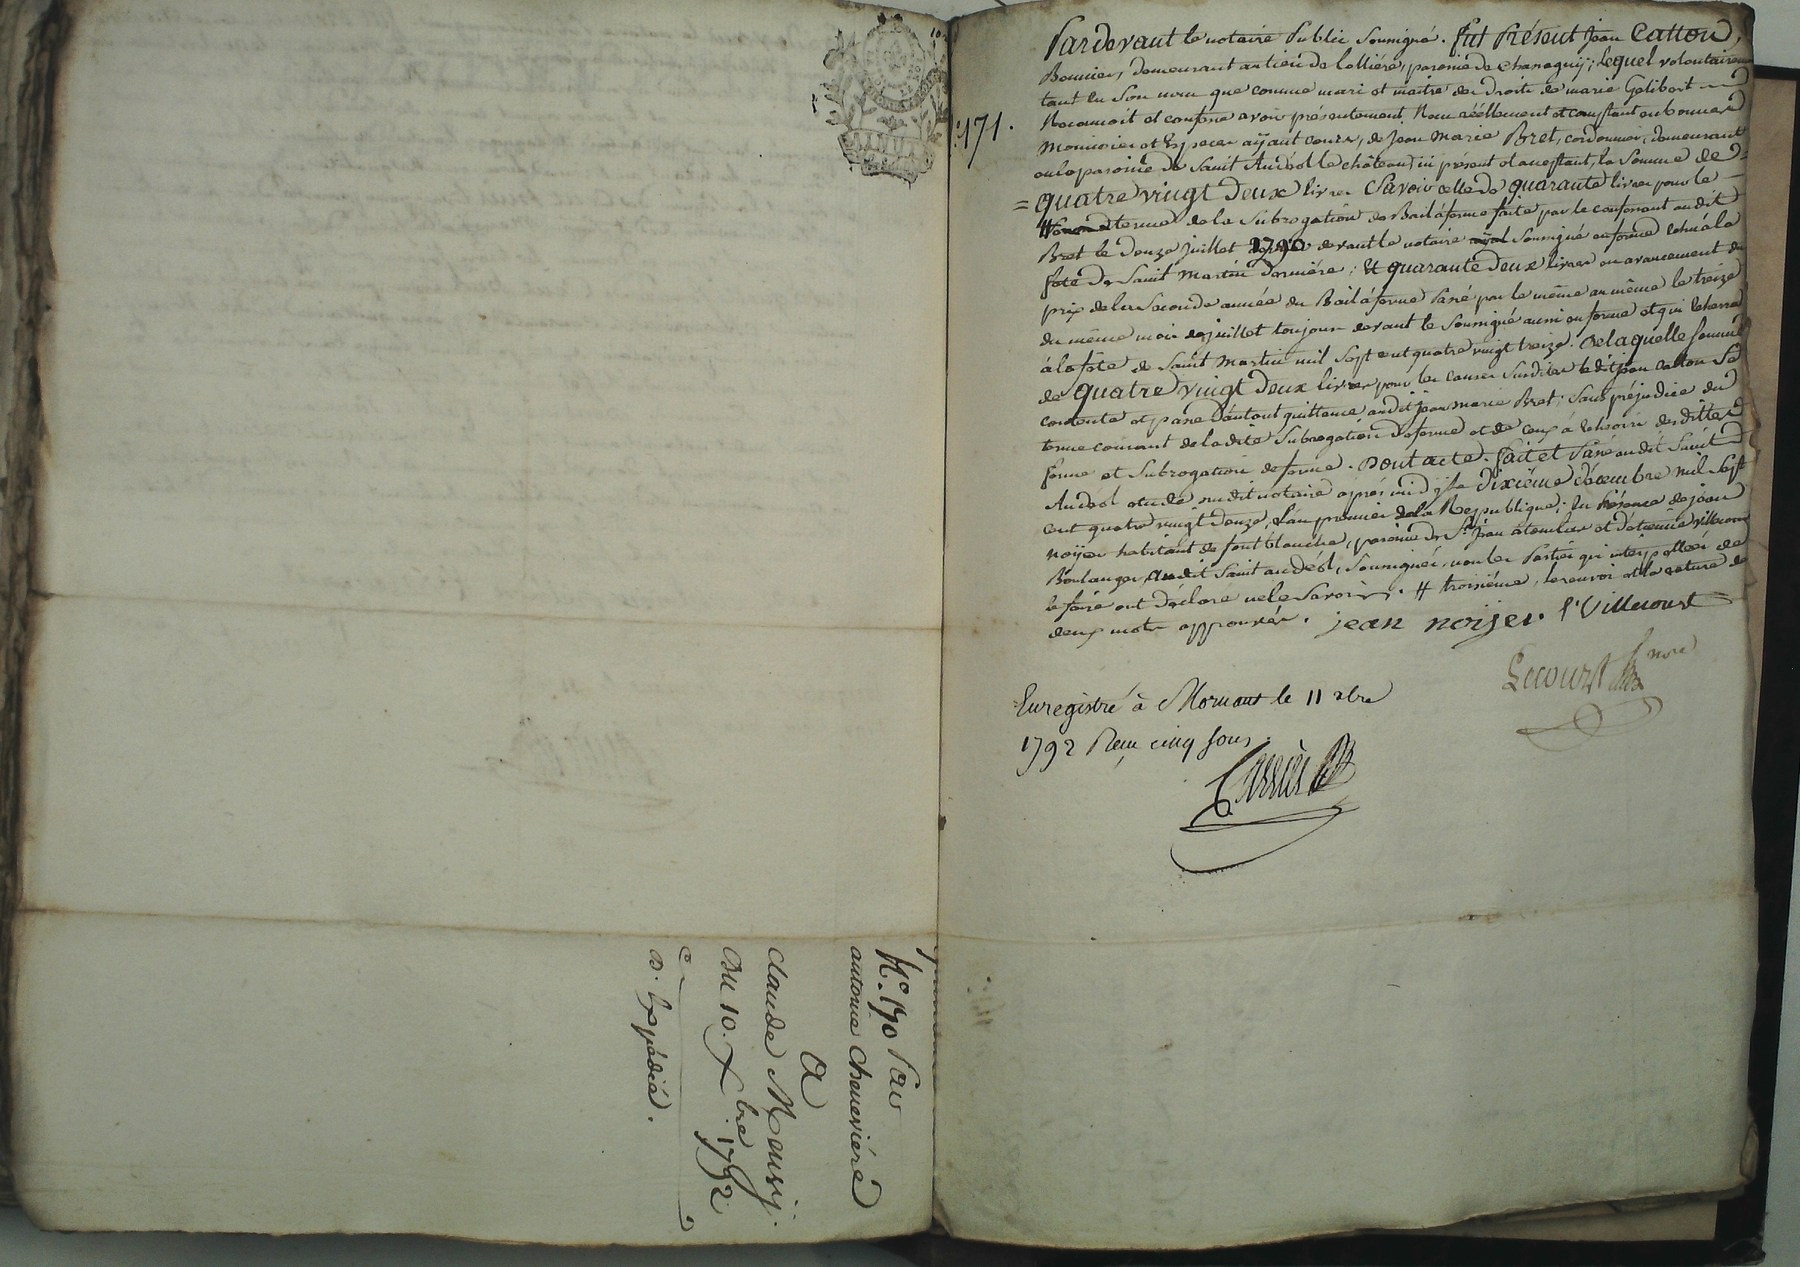 N.° 170 Par
antoine Cheneviére
A
claude Mousy.
Du 10. Xbre. 1792
D. Expédié.
171.
Pardevant le notaire Public Soussigné. fut Présent Jean Catton,
Bouvier, demeurant au lieu de lolliére, paroisse de Chanagny; Lequel volontairem
tant en Son nom que comme mari et maitre des droits de marie Gelibert
Reconnoit et confesse avoir présentement Recu réellement et comptant en bonnes
Monnoies et Especes aÿant cours, de Jean Marie Bret, cordonnier, demeurant
en la paroisse de Saint Andéol le château, ici présent et acceptant, la Somme de
= quatre vingt Deux livres Savoir celle de quarante livres pour le
# terme de la Subrogation de Bail à ferme faite par le confessant audit
Bret le douze Juillet 1790 devant le notaire Soussigné en forme echu à la
fete de Saint Martin derniére; Et quarante Deux livres en avancement du
prix de la Seconde année du Bail à ferme Passé par le même au même le treize
du même mois de juillet toujours devant le Soussigné aussi en forme et qui echerra
à la fête de Saint Martin mil Sept cent quatre vingt treize. De laquelle Somme
de quatre vingt Deux livres pour les causes Susdites ledit Jean Catton Se
contente et passe d'autant quittance audit Jean Marie Bret; Sans préjudice du
terme courant de la dite Subrogation de ferme et de ceux à echeoir desdittes
ferme et Subrogation de ferme. Dont acte. Fait et Passé audit Saint
Andéol etude dudit notaire après midy le dixième décembre mil Sept
cent quatre vingt douze, L'an premier de la Republique; En Présence de jean
noÿer habitant de font blanche, paroisse de St. Jean à toulas et d'etienne villecourt
Boulanger audit Saint andéol, Soussignés, non les Parties qui interpellées de
le faire ont déclaré ne le Savoir. # troisiéme, le renvoi et la rature de
deux mots approuvés. jean noijer. E. Villecourt
Lecourt nore
Enregistré à Mornant le 11 xbre
1792 Reçu cinq sous.